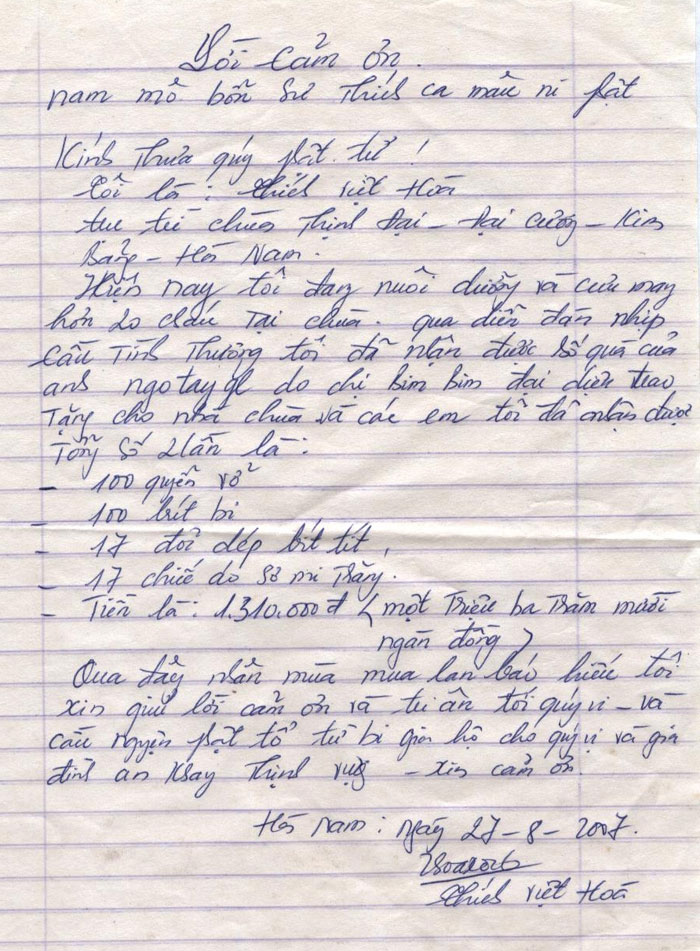 Lời cảm ơn.
nam mô bổn sư Thích ca mâu ni phật
Kính Thưa quý phật tử !
Tôi là : Thích việt Hoà
trụ trì chùa Thịnh Đại - Đại cương - Kim
Bảng - Hà Nam.
Hiện nay tôi đang nuôi dưỡng và cưu mang
hơn 20 cháu Tại chùa. qua diễn đàn nhịp
cầu Tình Thương tôi đã nhận được số quà của
anh ngotaygl do chị bim bim đại diện trao
Tặng cho nhà chùa và các em tôi đã nhận được
Tổng số 2 lần là :
- 100 quyển vở
- 100 bút bi
- 17 đôi dép bít tít,
- 17 chiếc áo sơ mi Trắng.
- Tiền là : 1.310.000đ (một Triệu ba Trăm mười
ngàn đồng)
Qua đây nhân mùa mua lan báo hiếu tôi
xin gửi lời cảm ơn và tri ân tới quý vị - và
cầu nguyện phật tổ từ bi gia hộ cho quý vị và gia
đình an Khang Thịnh vượng - xin cảm ơn.
Hà Nam : ngày 27-8-2007.
Thích việt Hoà